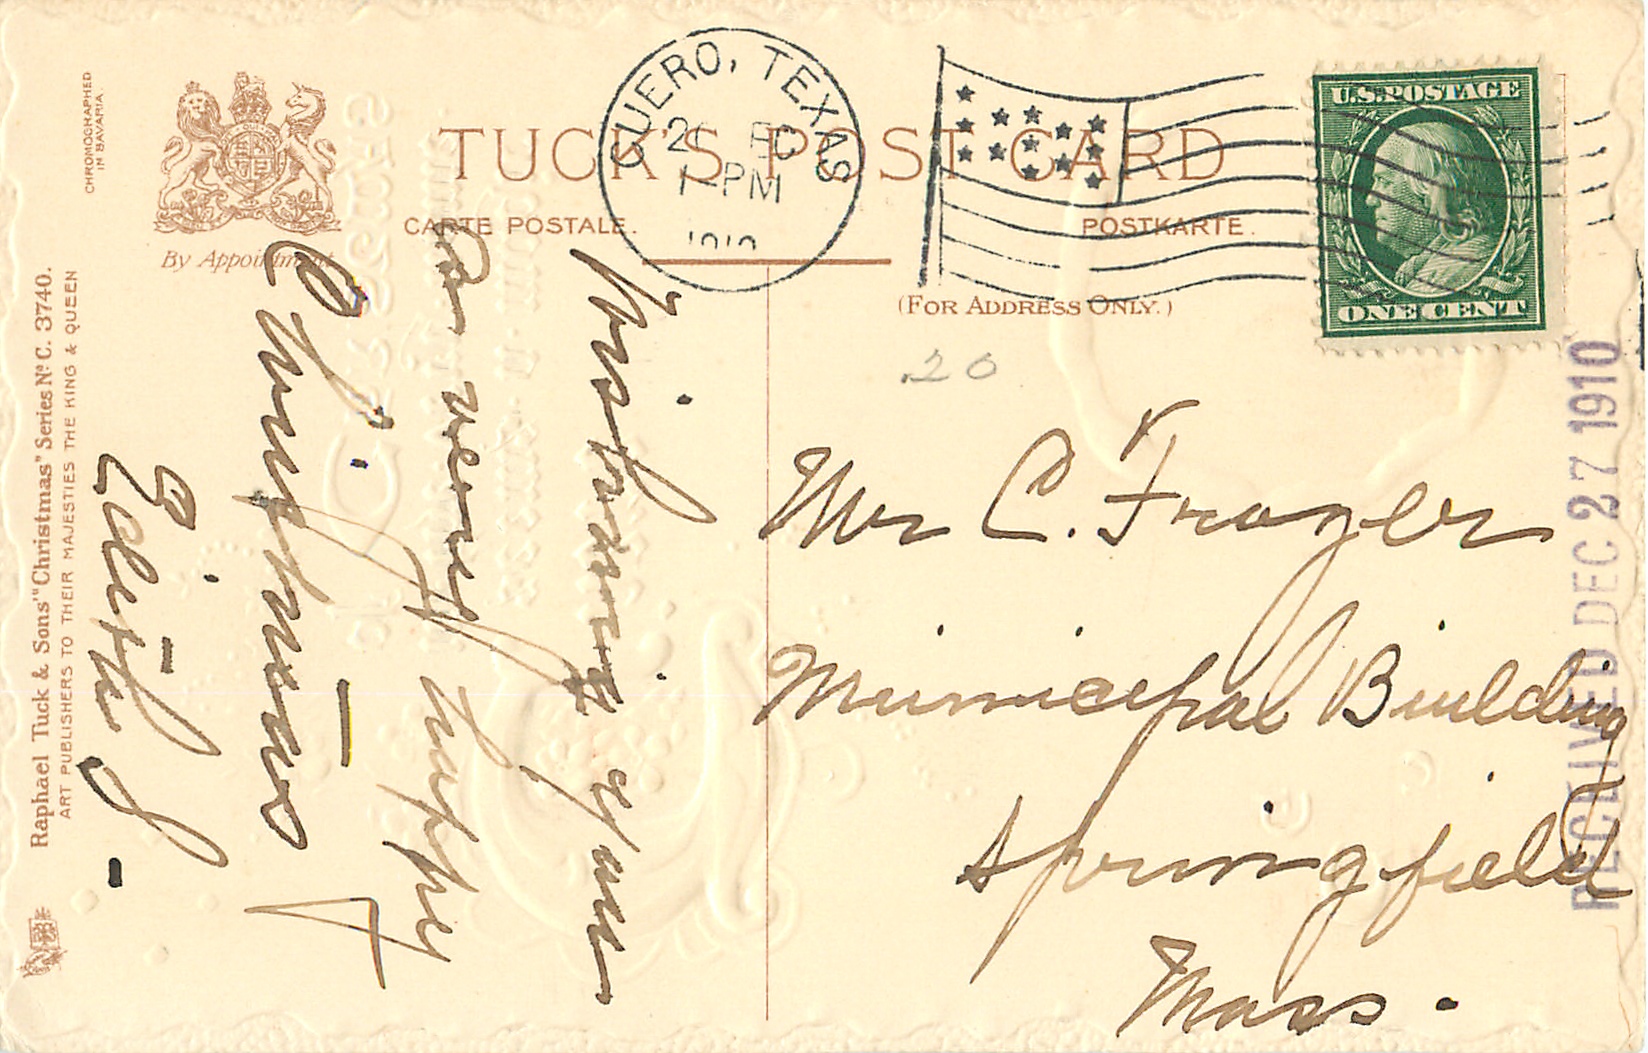 CHROMOGRAPHED
IN BAVARIA.
By Appointment
TUCK'S POST CARD
CARTE POSTALE.
POSTKARTE.
(FOR ADDRESS ONLY.)
CUERO, TEXAS
1-PM
U.S. POSTAGE
ONE CENT
20
RECEIVED DEC 27 1910
Raphael Tuck & Sons' "Christmas" Series No C. 3740.
ART PUBLISHERS TO THEIR MAJESTIES THE KING & QUEEN
Wishing you
a very happy
Christmas
Edith J-
Mr C. Frazer
Municipal Building
Springfield
Mass.